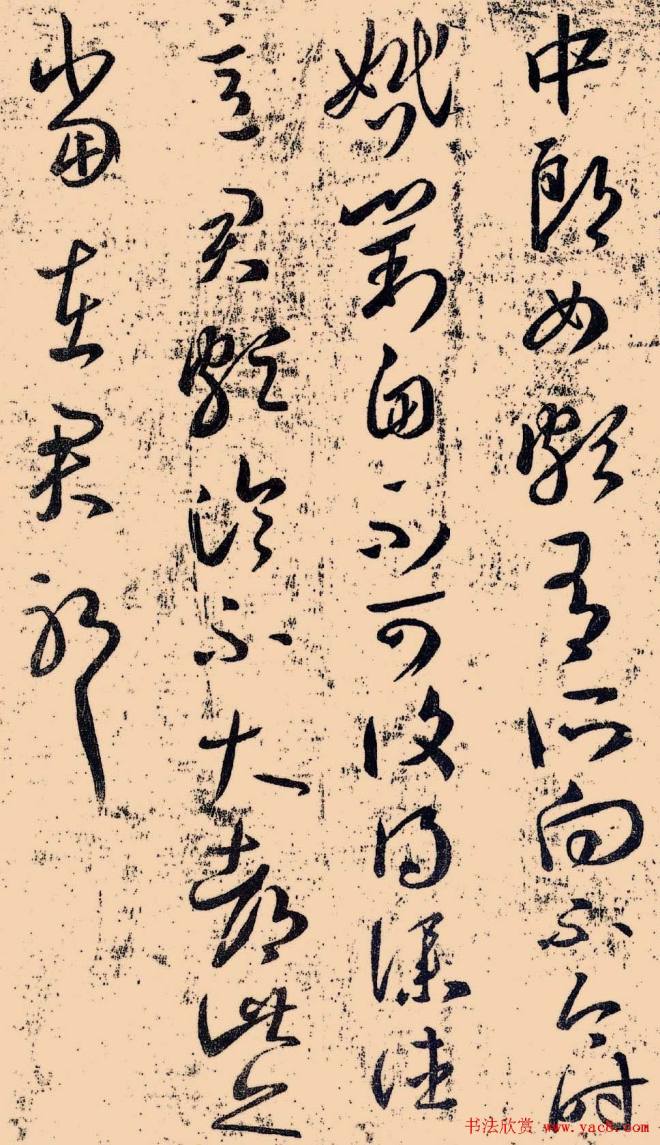 中郎女頗有所向不今時
婚對自不可復得僕往
意君頗論不大都此亦
當在君耶
书法欣赏 www.yac8.com